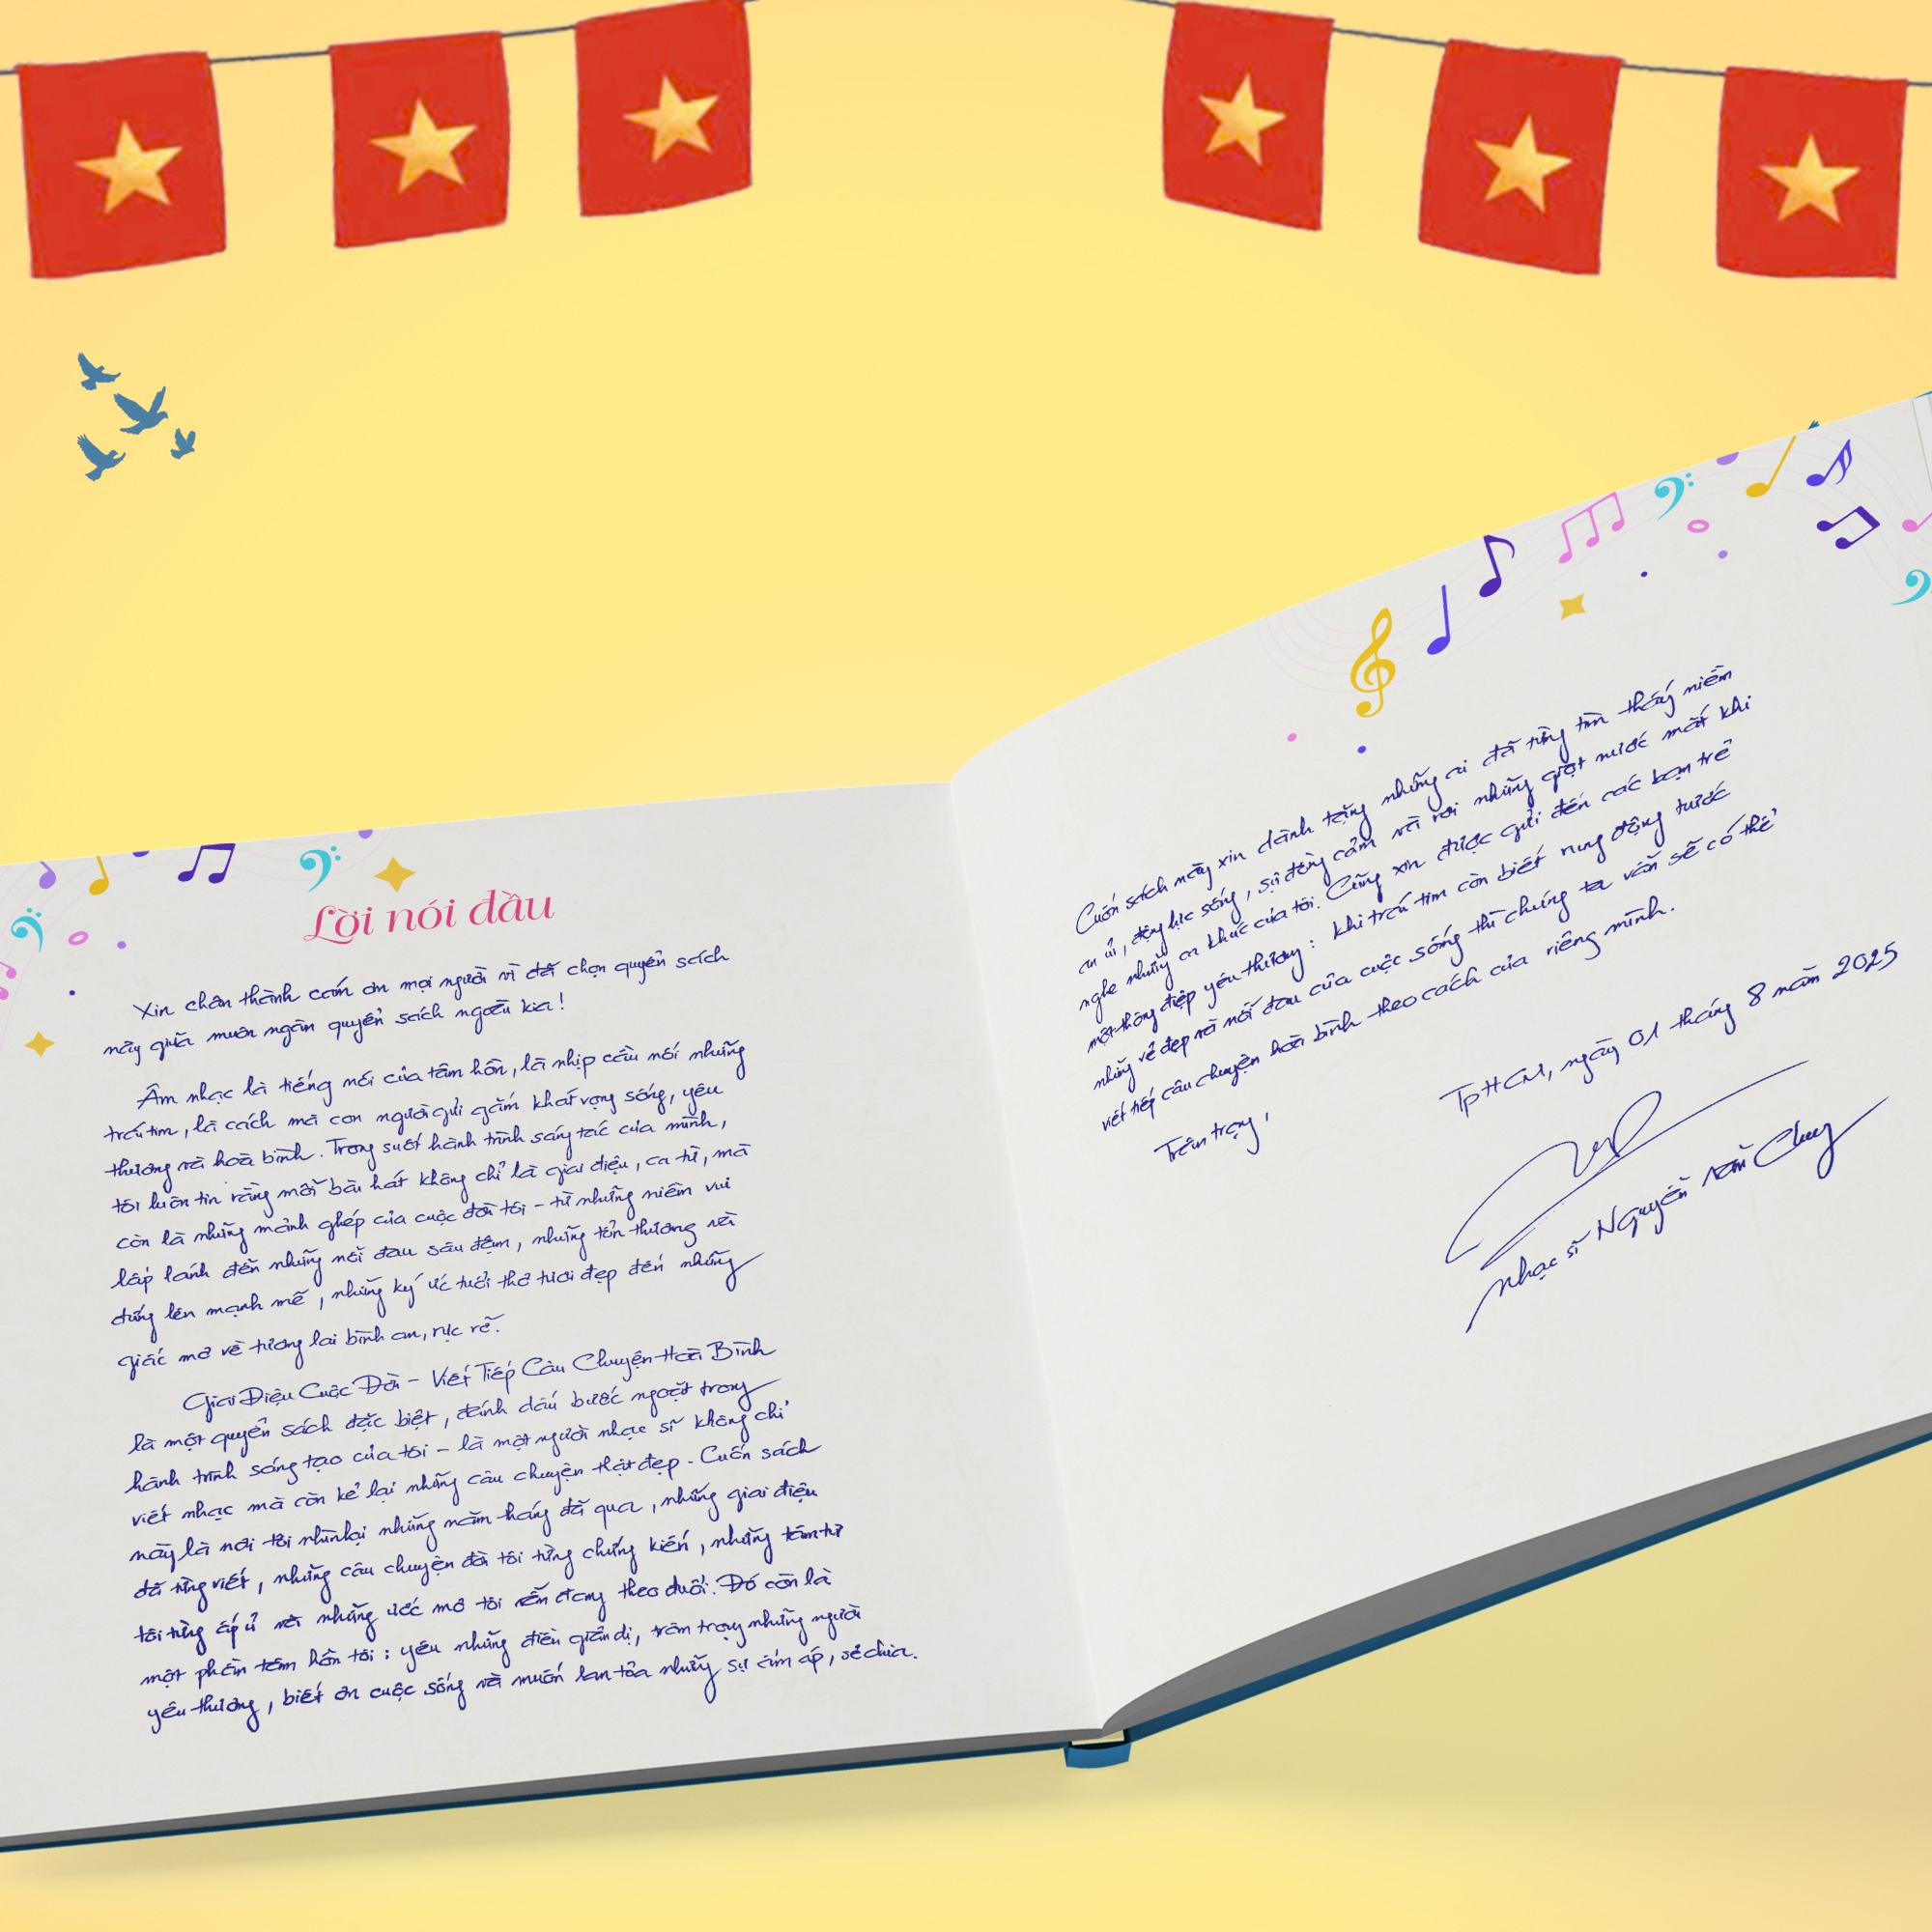 Lời nói đầu
Xin chân thành cám ơn mọi người vì đã chọn quyển sách
này giữa muôn ngàn quyển sách ngoài kia!
Âm nhạc là tiếng nói của tâm hồn, là nhịp cầu nối những
trái tim, là cách mà con người gửi gắm khát vọng sống, yêu
thương và hoà bình. Trong suốt hành trình sáng tác của mình,
tôi luôn tin rằng mỗi bài hát không chỉ là giai điệu, ca từ, mà
còn là những mảnh ghép của cuộc đời tôi - từ những niềm vui
lấp lánh đến những nỗi đau sâu đậm, những tổn thương và
đứng lên mạnh mẽ, những ký ức tuổi thơ tươi đẹp đến những
giấc mơ về tương lai bình an, rực rỡ.
Giai Điệu Cuộc Đời - Viết Tiếp Câu Chuyện Hoà Bình
là một quyển sách đặc biệt, đánh dấu bước ngoặt trong
hành trình sáng tạo của tôi - là một người nhạc sĩ không chỉ
viết nhạc mà còn kể lại những câu chuyện thật đẹp. Cuốn sách
này là nơi tôi nhìn lại những năm tháng đã qua, những giai điệu
đã từng viết, những câu chuyện đời tôi từng chứng kiến, những tâm tư
tôi từng ấp ủ và những ước mơ tôi vẫn đang theo đuổi. Đó còn là
một phần tâm hồn tôi: yêu những điều giản dị, trân trọng những người
yêu thương, biết ơn cuộc sống và muốn lan tỏa những sự ấm áp, sẻ chia.
Cuốn sách này xin dành tặng những ai đã từng tìm thấy niềm
an ủi, động lực sống, sự đồng cảm và rơi những giọt nước mắt khi
nghe những ca khúc của tôi. Cũng xin được gửi đến các bạn trẻ
một thông điệp yêu thương: khi trái tim còn biết rung động trước
những vẻ đẹp và nỗi đau của cuộc sống thì chúng ta vẫn sẽ có thể
viết tiếp câu chuyện hoà bình theo cách của riêng mình.
Trân trọng,
TpHCM, ngày 01 tháng 8 năm 2025
Nhạc sĩ Nguyễn Văn Chung